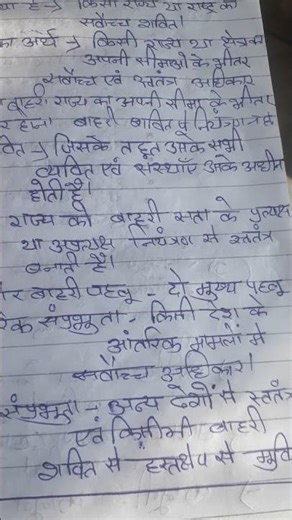 किसी राज्य या राष्ट्र की
सर्वोच्च शक्ति।
का अर्थ → किसी राज्य या क्षेत्र का
अपनी सीमाओं के भीतर
सर्वोच्च एवं स्वतंत्र अधिकार
बाहरी राज्य का अपनी सीमा के भीतर
होना बाहरी शक्ति
→ जिसके तहत उसके सभी
व्यक्ति एवं संस्थाएँ उसके अधीन
होती हैं।
राज्य को बाहरी सत्ता के प्रत्यक्ष
या अप्रत्यक्ष नियंत्रण से स्वतंत्र
बनाती है।
बाहरी पहलू - दो मुख्य पहलू
संप्रभुता - किसी देश के
आंतरिक मामलों में
सर्वोच्च अधिकार।
संप्रभुता - अन्य देशों से स्वतंत्र
एवं किसी भी बाहरी
शक्ति से हस्तक्षेप से